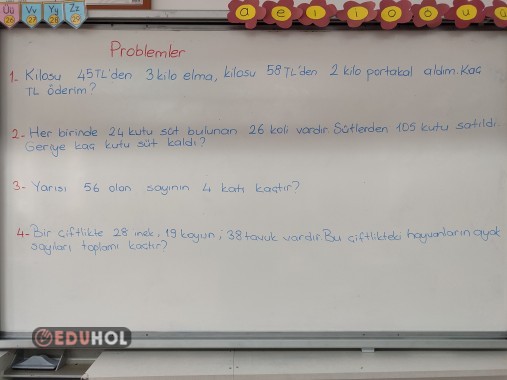 Üü Vv Yy Zz
26 27 28 29
a e ı i o ö u
Problemler
1- Kilosu 45TL'den 3 kilo elma, kilosu 58 TL'den 2 kilo portakal aldım. Kaç
TL öderim?
2- Her birinde 24 kutu süt bulunan 26 koli vardır. Sütlerden 105 kutu satıldı.
Geriye kaç kutu süt kaldı?
3- Yarısı 56 olan sayının 4 katı kaçtır?
4- Bir çiftlikte 28 inek, 19 koyun, 38 tavuk vardır. Bu çiftlikteki hayvanların ayak
sayıları toplamı kaçtır?
EDUHOL